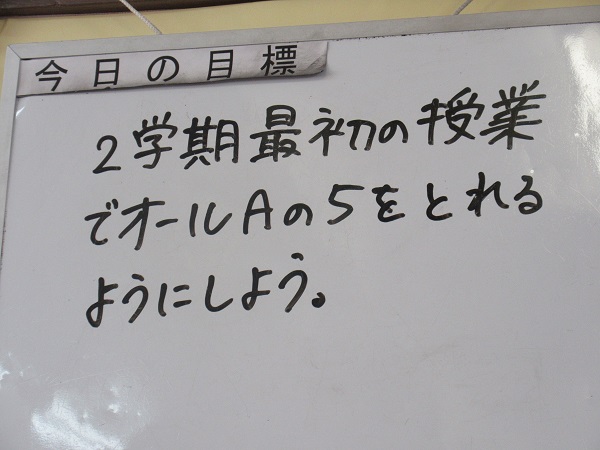 今日の目標
2学期最初の授業
でオールAの5をとれる
ようにしよう。